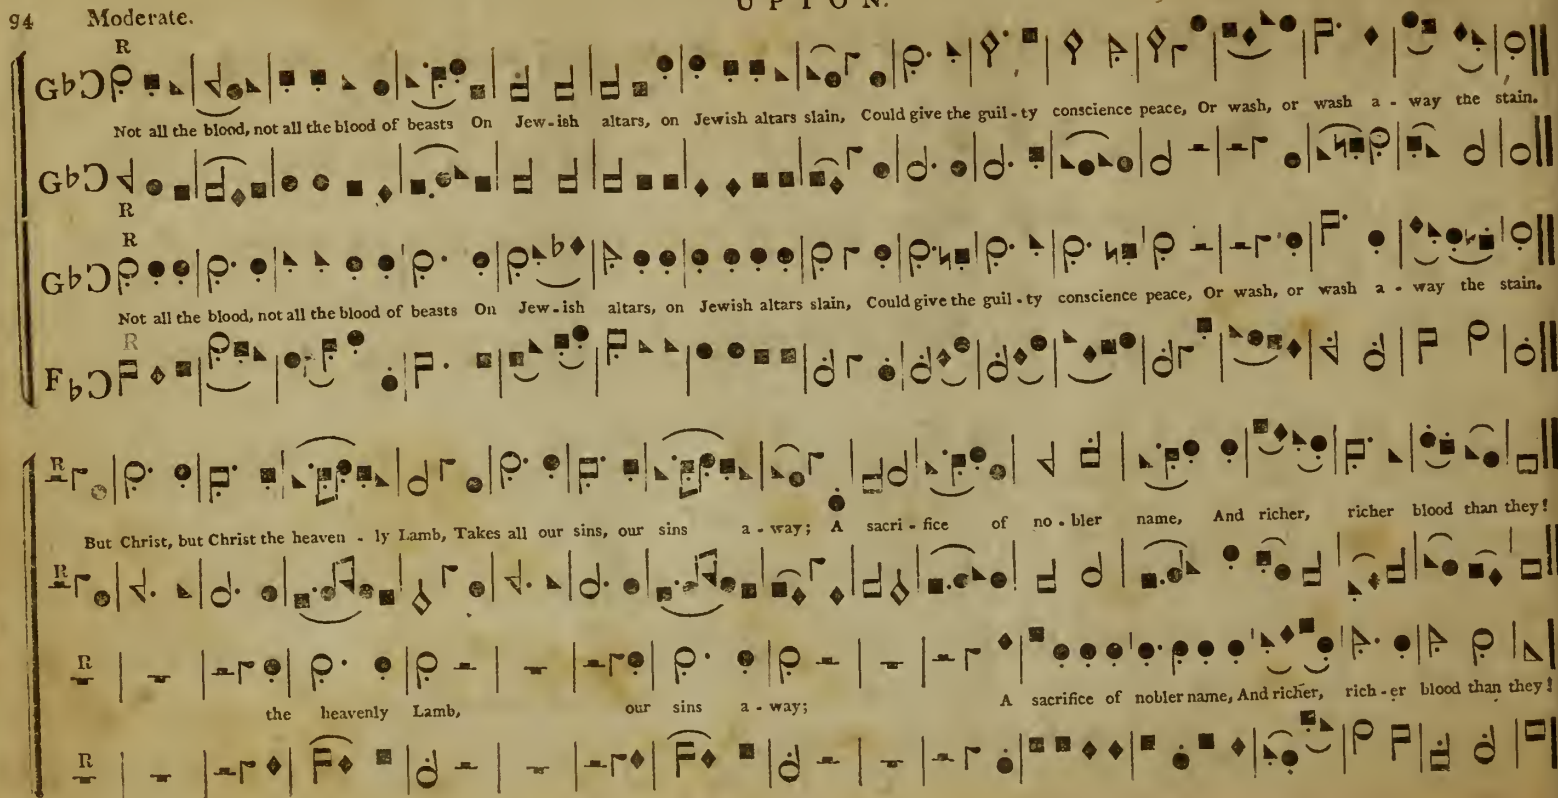 UPTON.
94 Moderate.
R
G♭Ɔ
Not all the blood, not all the blood of beasts On Jew-ish altars, on Jewish altars slain, Could give the guil-ty conscience peace, Or wash, or wash a-way the stain.
G♭Ɔ
R
R
G♭Ɔ
Not all the blood, not all the blood of beasts On Jew-ish altars, on Jewish altars slain, Could give the guil-ty conscience peace, Or wash, or wash a-way the stain.
R
F♭Ɔ
R
But Christ, but Christ the heaven-ly Lamb, Takes all our sins, our sins a-way; A sacri-fice of no-bler name, And richer, richer blood than they!
R
R
the heavenly Lamb, our sins a-way; A sacrifice of nobler name, And richer, rich-er blood than they!
R